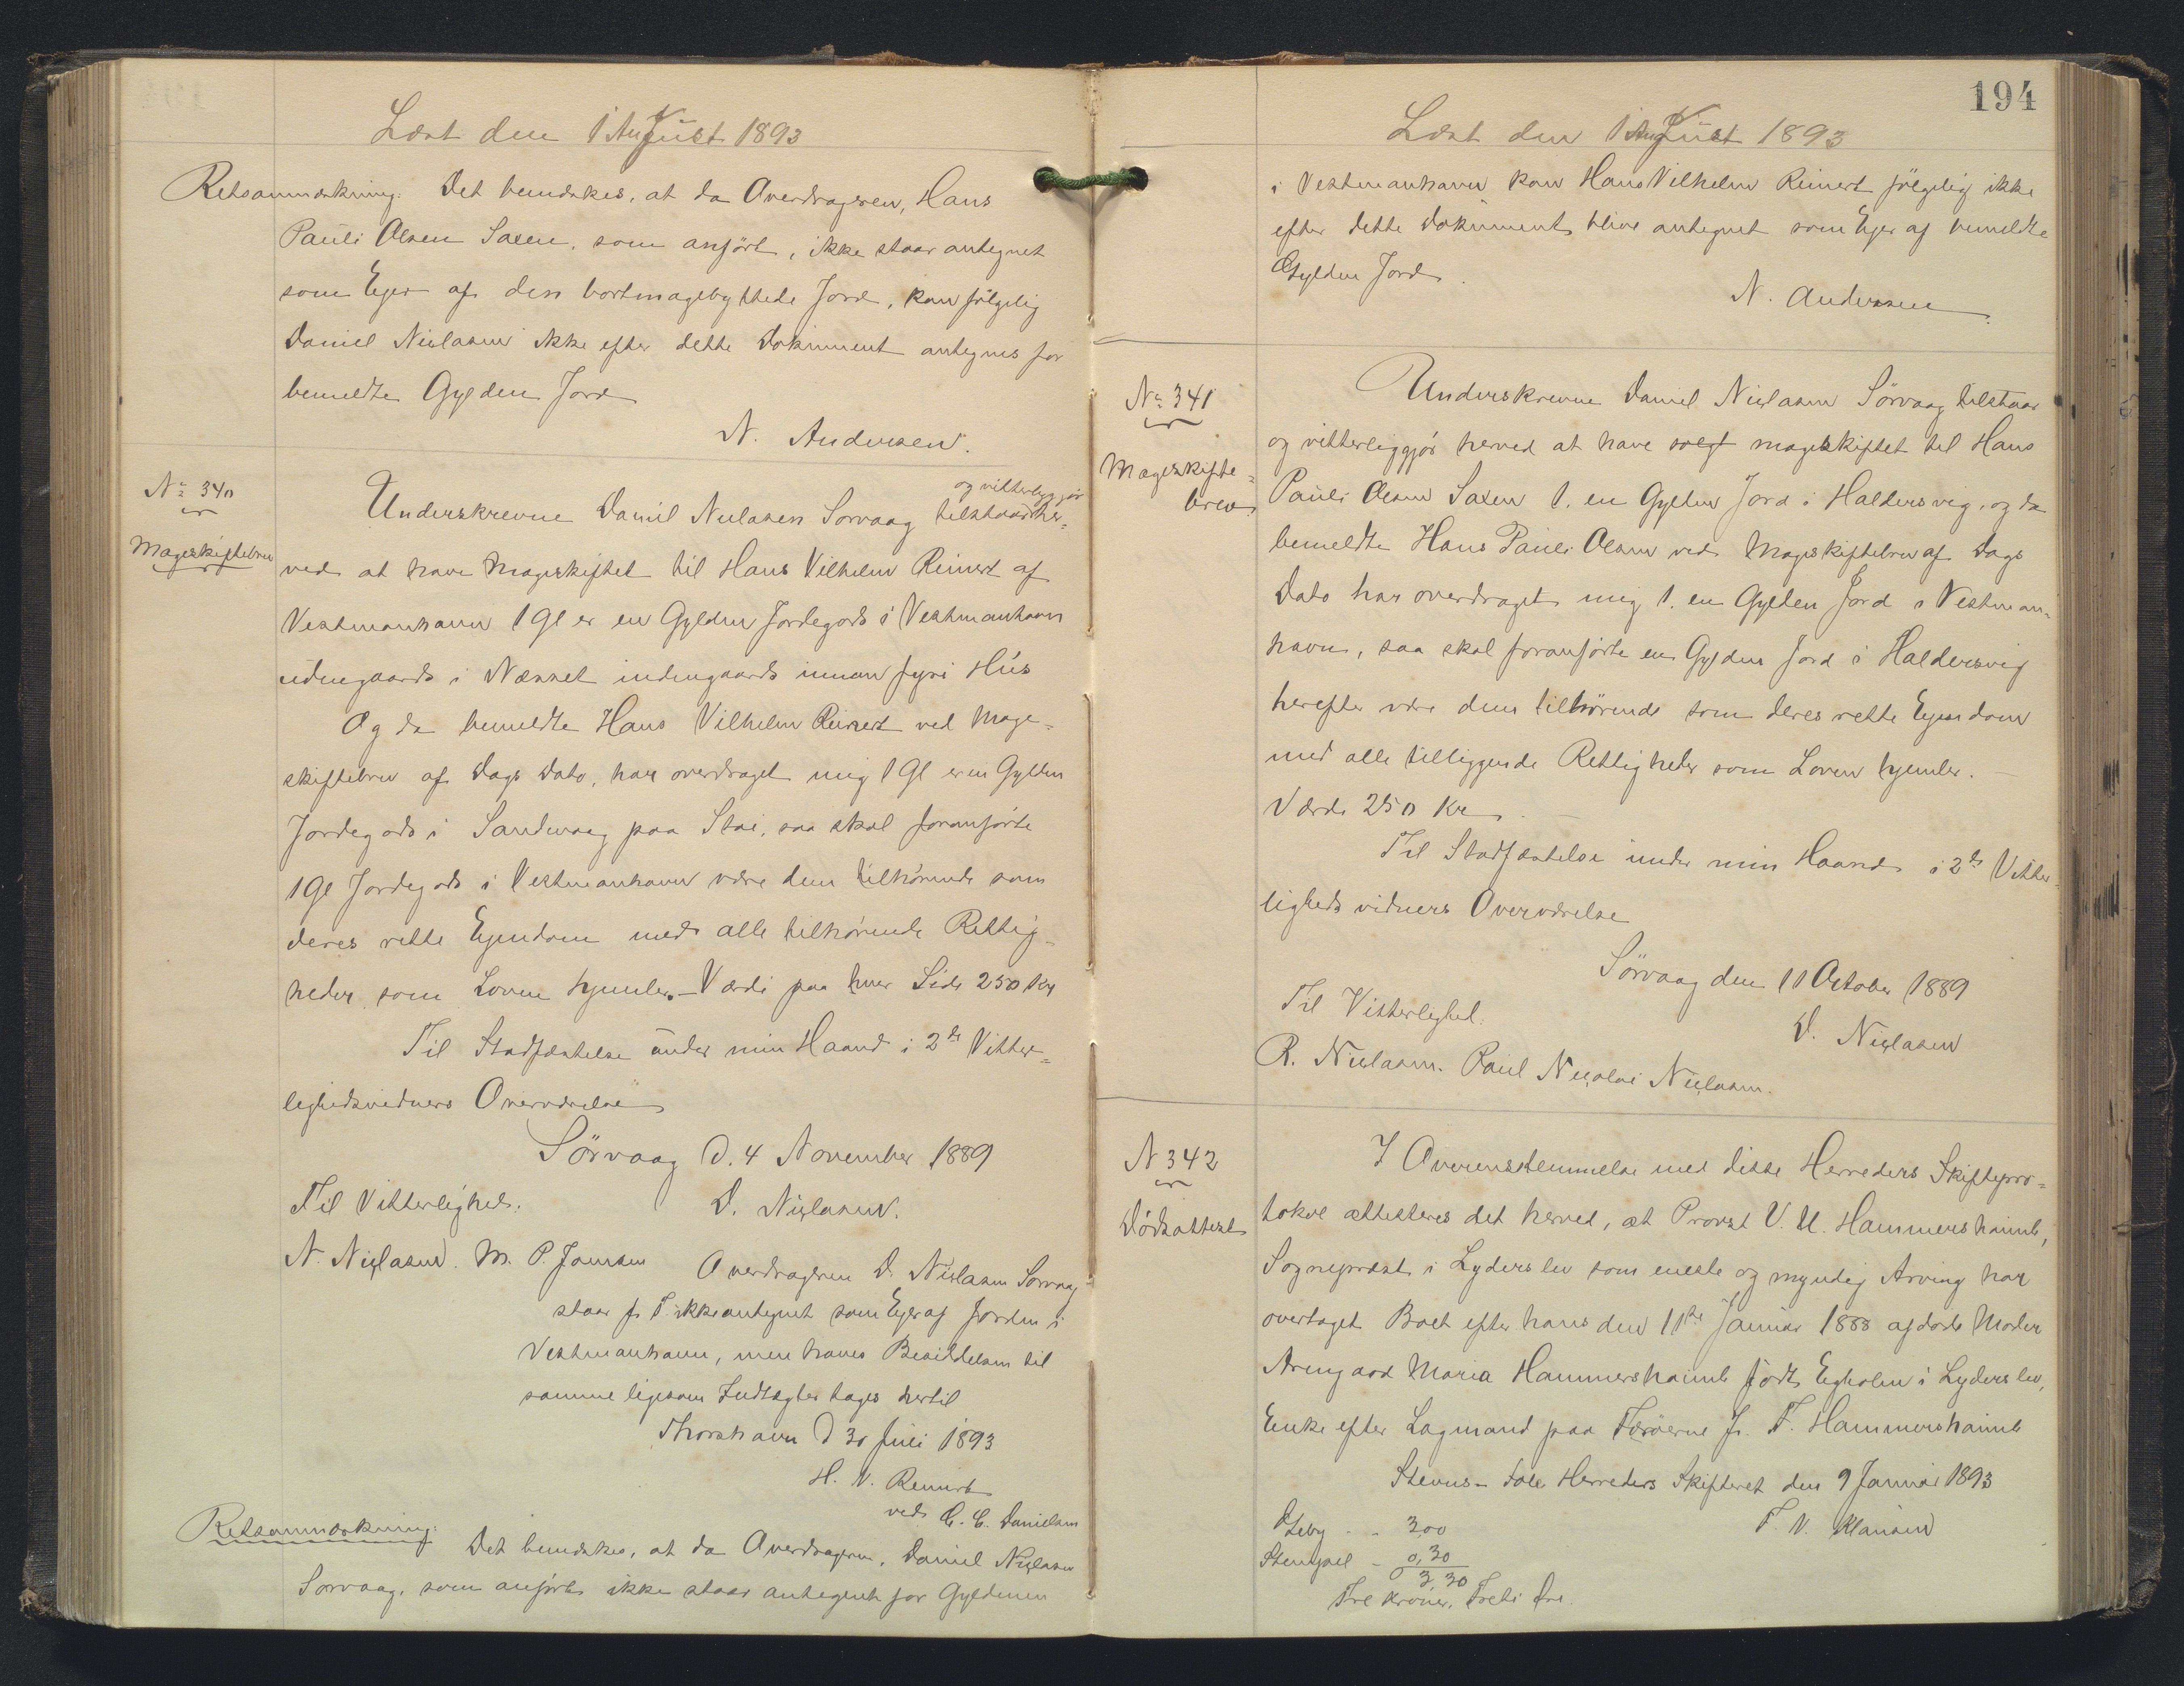 Læst den 1 August 1893
Retsanmærkning: Det bemærkes, at da Overdrageren, Hans
Pauli Olsen Saxen, som anført, ikke staar antegnet
som Ejer af den bortmagebyttede Jord, kan følgelig
Daniel Niclasen ikke efter dette Dokument antegnes for
bemeldte Gylden Jord
N. Andersen.
Nº 340
Mageskiftebrev
og vitterliggjør
Underskrevne Daniel Niclasen Sørvaag tilstaar her=
ved at have Mageskiftet til Hans Vilhelm Reinert af
Vestmanhavn 1 Gl er en Gylden Jordegods i Vestmanhavn
udengaards i Næsset indengaards innan fyri Hús
Og da bemeldte Hans Vilhelm Reinert ved Mage=
skiftebrev af Dags Dato, har overdraget mig 1 Gl er en Gylden
Jordegods i Sandevaag paa Stai, saa skal foranførte
1 Gl Jordegods i Vestmanhavn være dem tilhørende som
deres rette Ejendom med alle tilhørende Rettig=
heder som Loven hjemler. – Værdi paa hver Side 250 Kr
Til Stadfæstelse under min Haand i 2de Vitter=
lighedsvidners Overværelse
Sörvaag d. 4 November 1889
Til Vitterlighed. D. Niclasen.
N. Niclasen. M. P. Joensen
Overdrageren D. Niclasen Sørvaag
staar p. T. ikke antegnet som Ejer af Jorden i
Vestmanhavn, men haves Besiddelsen til
samme ligesom Indtægter tages hertil
Thorshavn d 30 Juli 1893
H. V. Reinert
ved C. C. Danielsen
Retsanmærkning:
Det bemærkes, at da Overdrageren, Daniel Niclasen
Sørvaag, som anført ikke staar antegnet for Gyldenen
194
Læst den 1 August 1893
i Vestmanhavn kan Hans Vilhelm Reinert følgelig ikke
efter dette Dokument blive antegnet som Ejer af bemeldte
Gylden Jord.
N. Andersen.
Nº 341
Mageskifte=
brev
Underskrevne Daniel Niclasen Sörvaag tilstaar
og vitterliggjör herved at have solgt mageskiftet til Hans
Pauli Olsen Saxen 1. en Gylden Jord i Haldersvig, og da
bemeldte Hans Pauli Olsen ved Mageskiftebrev af Dags
Dato har overdraget mig 1. en Gylden Jord i Vestman=
havn, saa skal foranførte en Gylden Jord i Haldersvig
herefter være dem tilhørende som deres rette Ejendom
med alle tilliggende Rettigheder som Loven hjemler. –
Værdi 250 Kr.
Til Stadfæstelse under min Haand i 2de Vitter=
ligheds vidners Overværelse
Sörvaag den 11 October 1889
Til Vitterlighed. D. Niclasen
R. Niclasen. Paul Nicolai Niclasen.
N 342
Dödsattest
I Overensstemmelse med disse Herreders Skiftepro=
tokol attesteres det herved, at Provst V. U. Hammershaimb,
Sognepræst i Lyderslev som eneste og myndig Arving har
overtaget Boet efter hans den 11te Januar 1888 afdøde Moder
Armgard Maria Hammershaimb født Egholm i Lyderslev,
Enke efter Lagmand paa Færøerne J. F. Hammershaimb
Stevns- Faxe Herreders Skifteret den 9 Januar 1893
F. V. Klausen
Geby - - 3,00
Stempel - 0,30
3,30
Tre Kroner, Treti Øre.